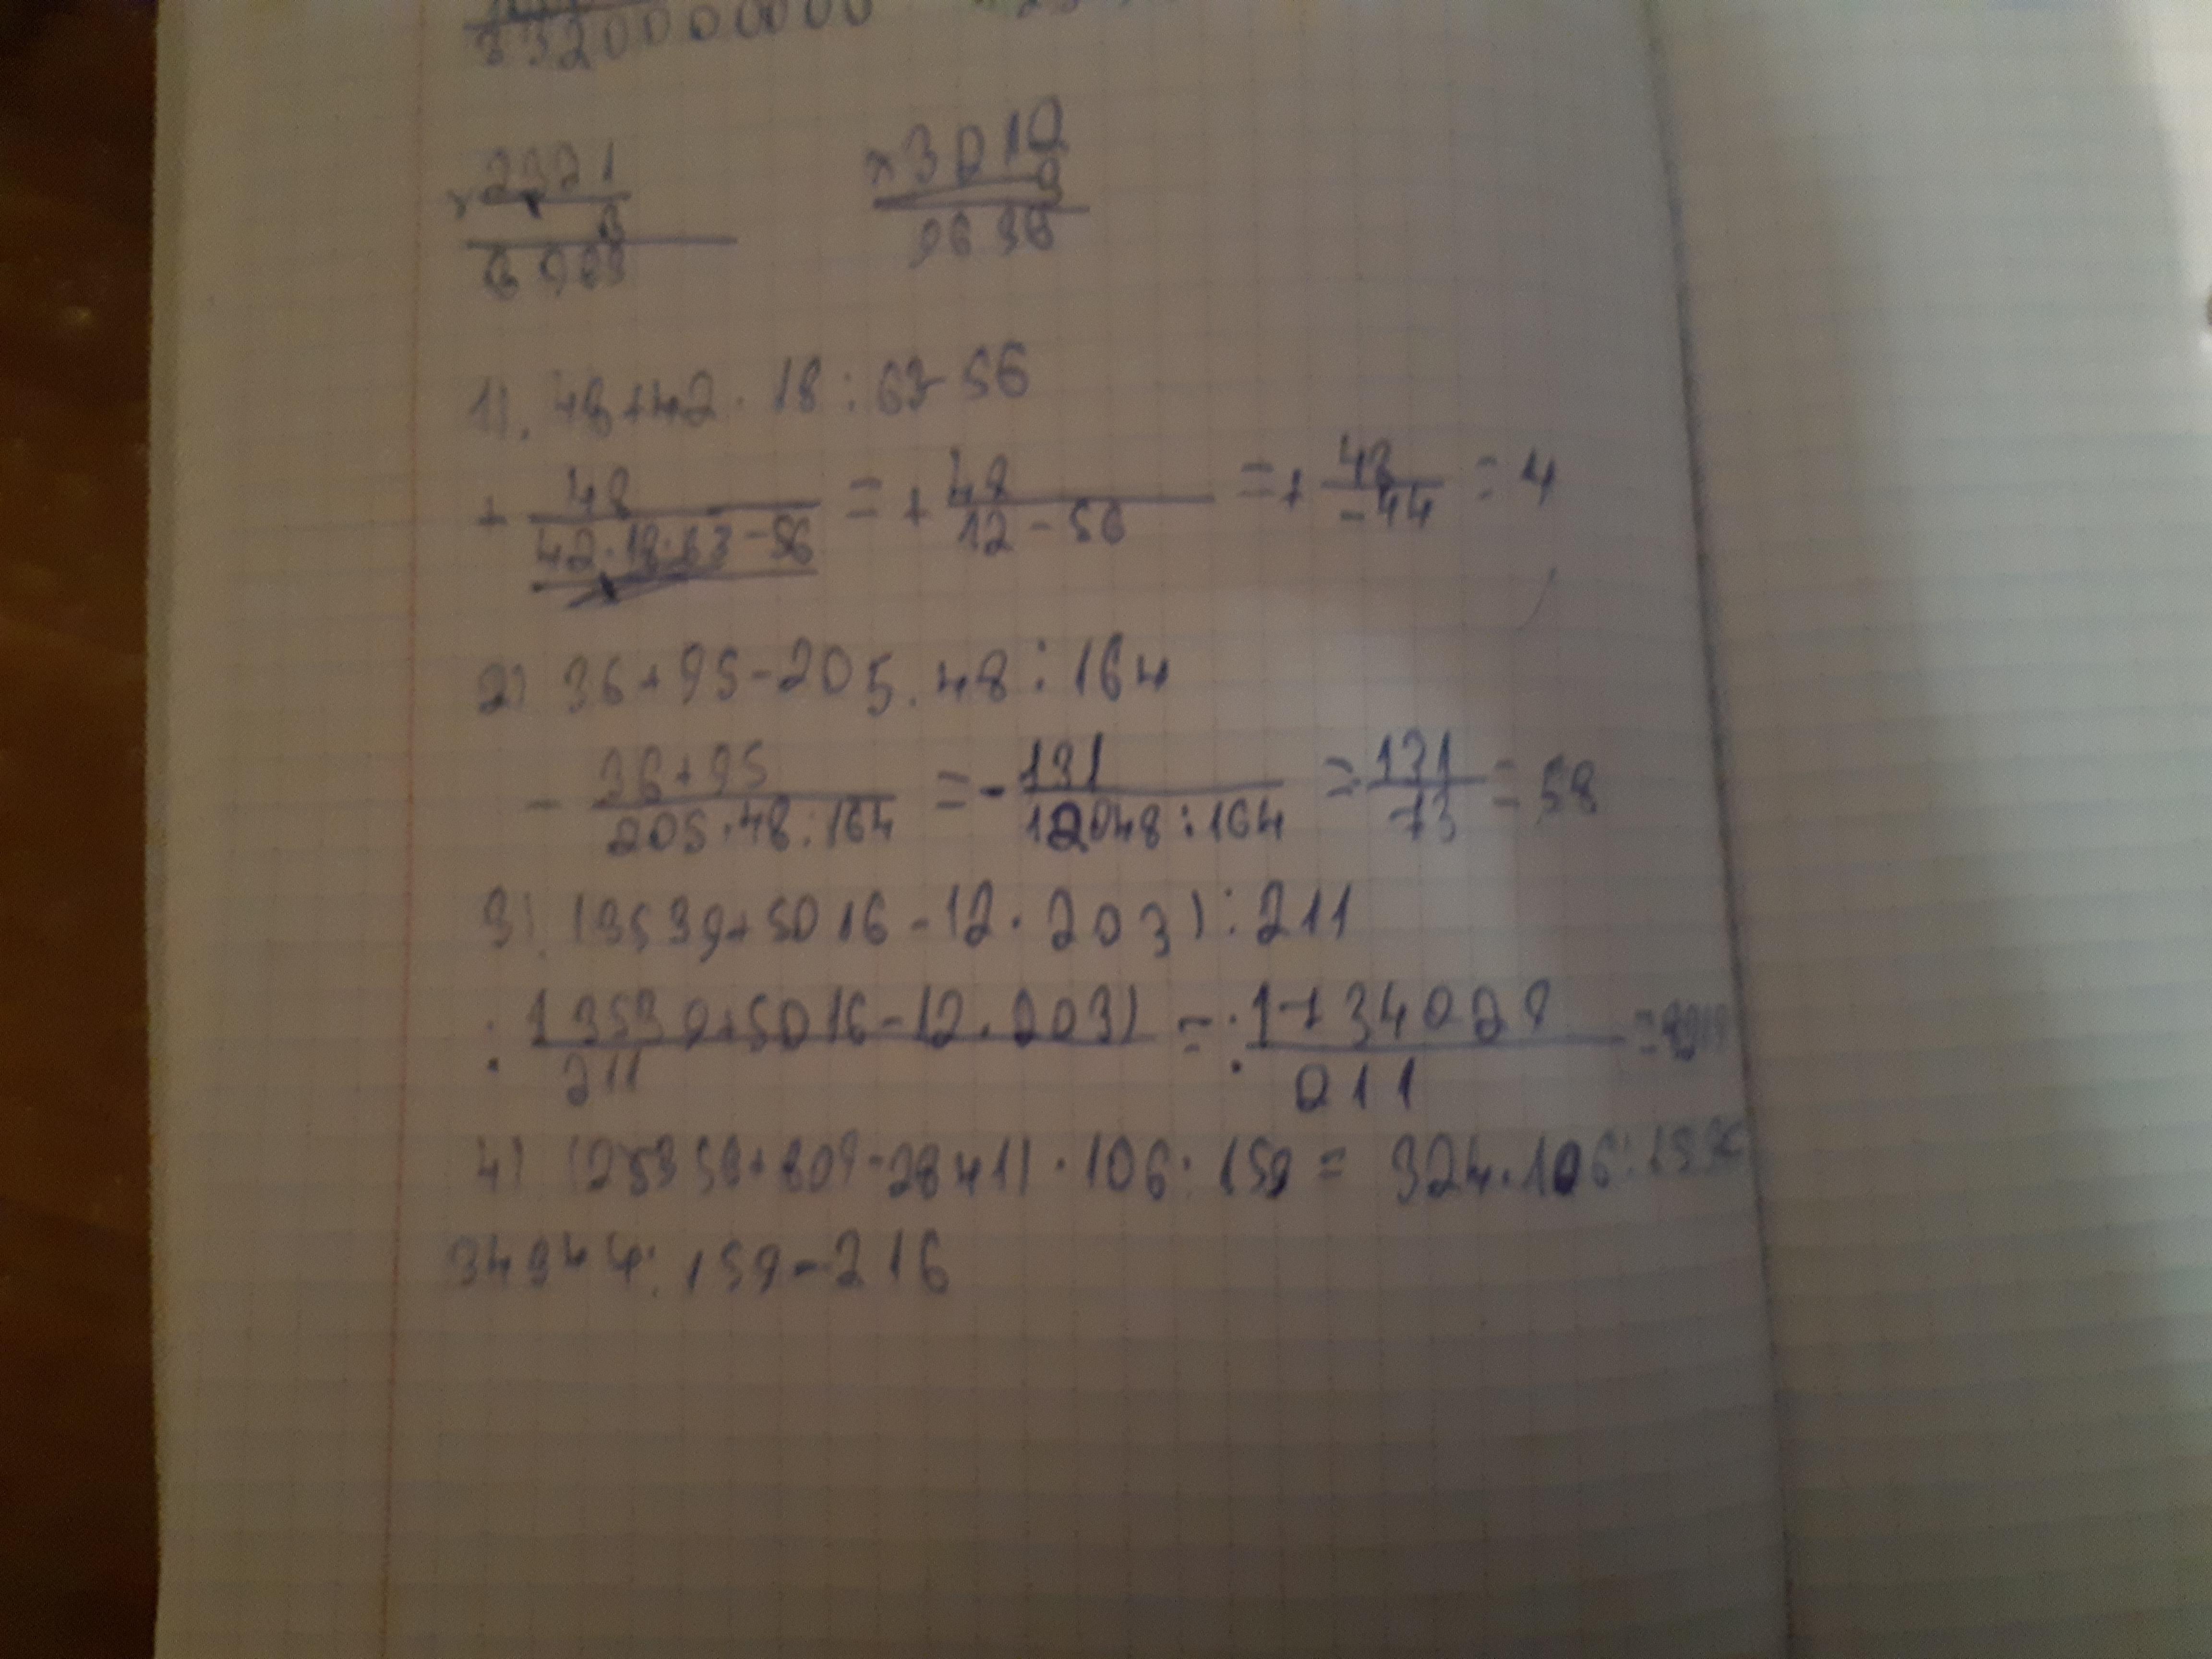 3320000000
× 2321
3
×3012
3
1). 48+42 · 18 : 63-56
+ 48 / 42·18:63-56 = + 48 / 12-56 = + 48 / -44 = 4
2) 36+95-205.48:164
- 36+95 / 205·48:164 = - 131 / 12048:164 = - 131 / 73 = 58
3). 13539+5016-12·203):211
: 13539+5016-12.203) / 211 = : 1734029 / 211 =
4) (25358+809-2841) · 106 : 159 = 324·106:159
34344:159-216